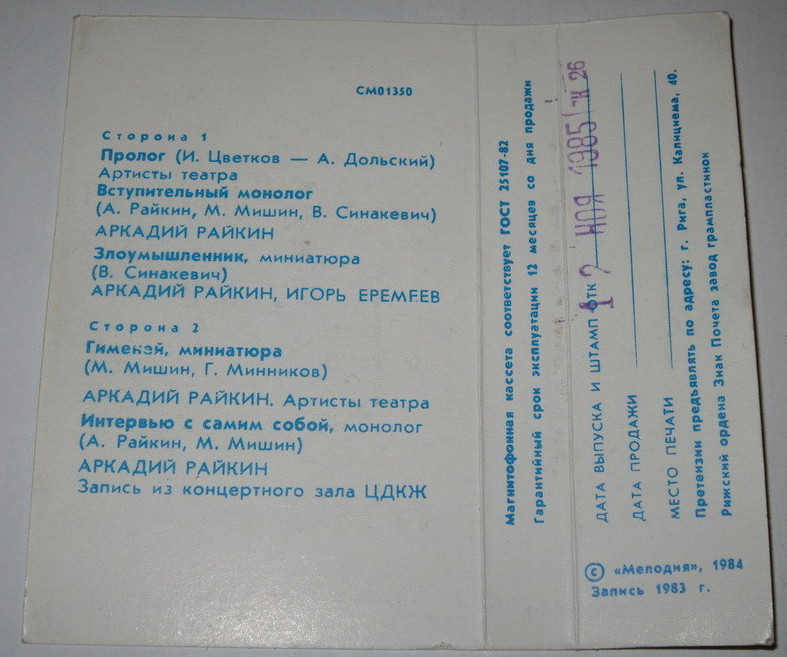 СМ01350
Сторона 1
Пролог (И. Цветков — А. Дольский)
Артисты театра
Вступительный монолог
(А. Райкин, М. Мишин, В. Синакевич)
АРКАДИЙ РАЙКИН
Злоумышленник, миниатюра
(В. Синакевич)
АРКАДИЙ РАЙКИН, ИГОРЬ ЕРЕМЕЕВ
Сторона 2
Гименей, миниатюра
(М. Мишин, Г. Минников)
АРКАДИЙ РАЙКИН. Артисты театра
Интервью с самим собой, монолог
(А. Райкин, М. Мишин)
АРКАДИЙ РАЙКИН
Запись из концертного зала ЦДКЖ
Магнитофонная кассета соответствует ГОСТ 25107-82
Гарантийный срок эксплуатации 12 месяцев со дня продажи
ДАТА ВЫПУСКА И ШТАМП ОТК НОЯ 1985 26
ДАТА ПРОДАЖИ
МЕСТО ПЕЧАТИ
Претензии предъявлять по адресу: г. Рига, ул. Калнциема, 40.
Рижский ордена Знак Почета завод грампластинок
© «Мелодия», 1984
Запись 1983 г.